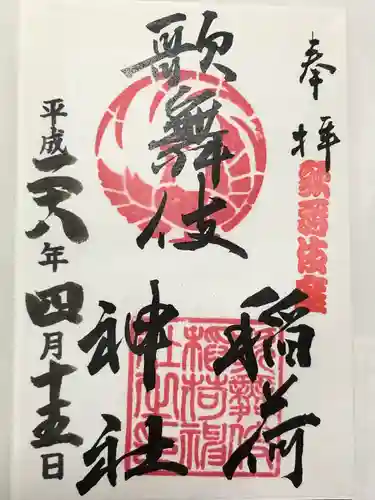 奉拝
歌舞伎座
歌舞伎
稲荷
神社
歌舞伎
稲荷神
社之印
平成二十八年四月十五日